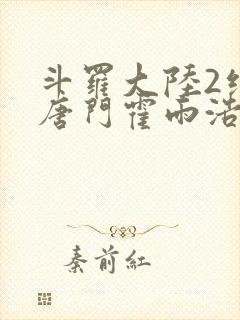 斗羅大陸2
唐門霍雨浩
秦前紅